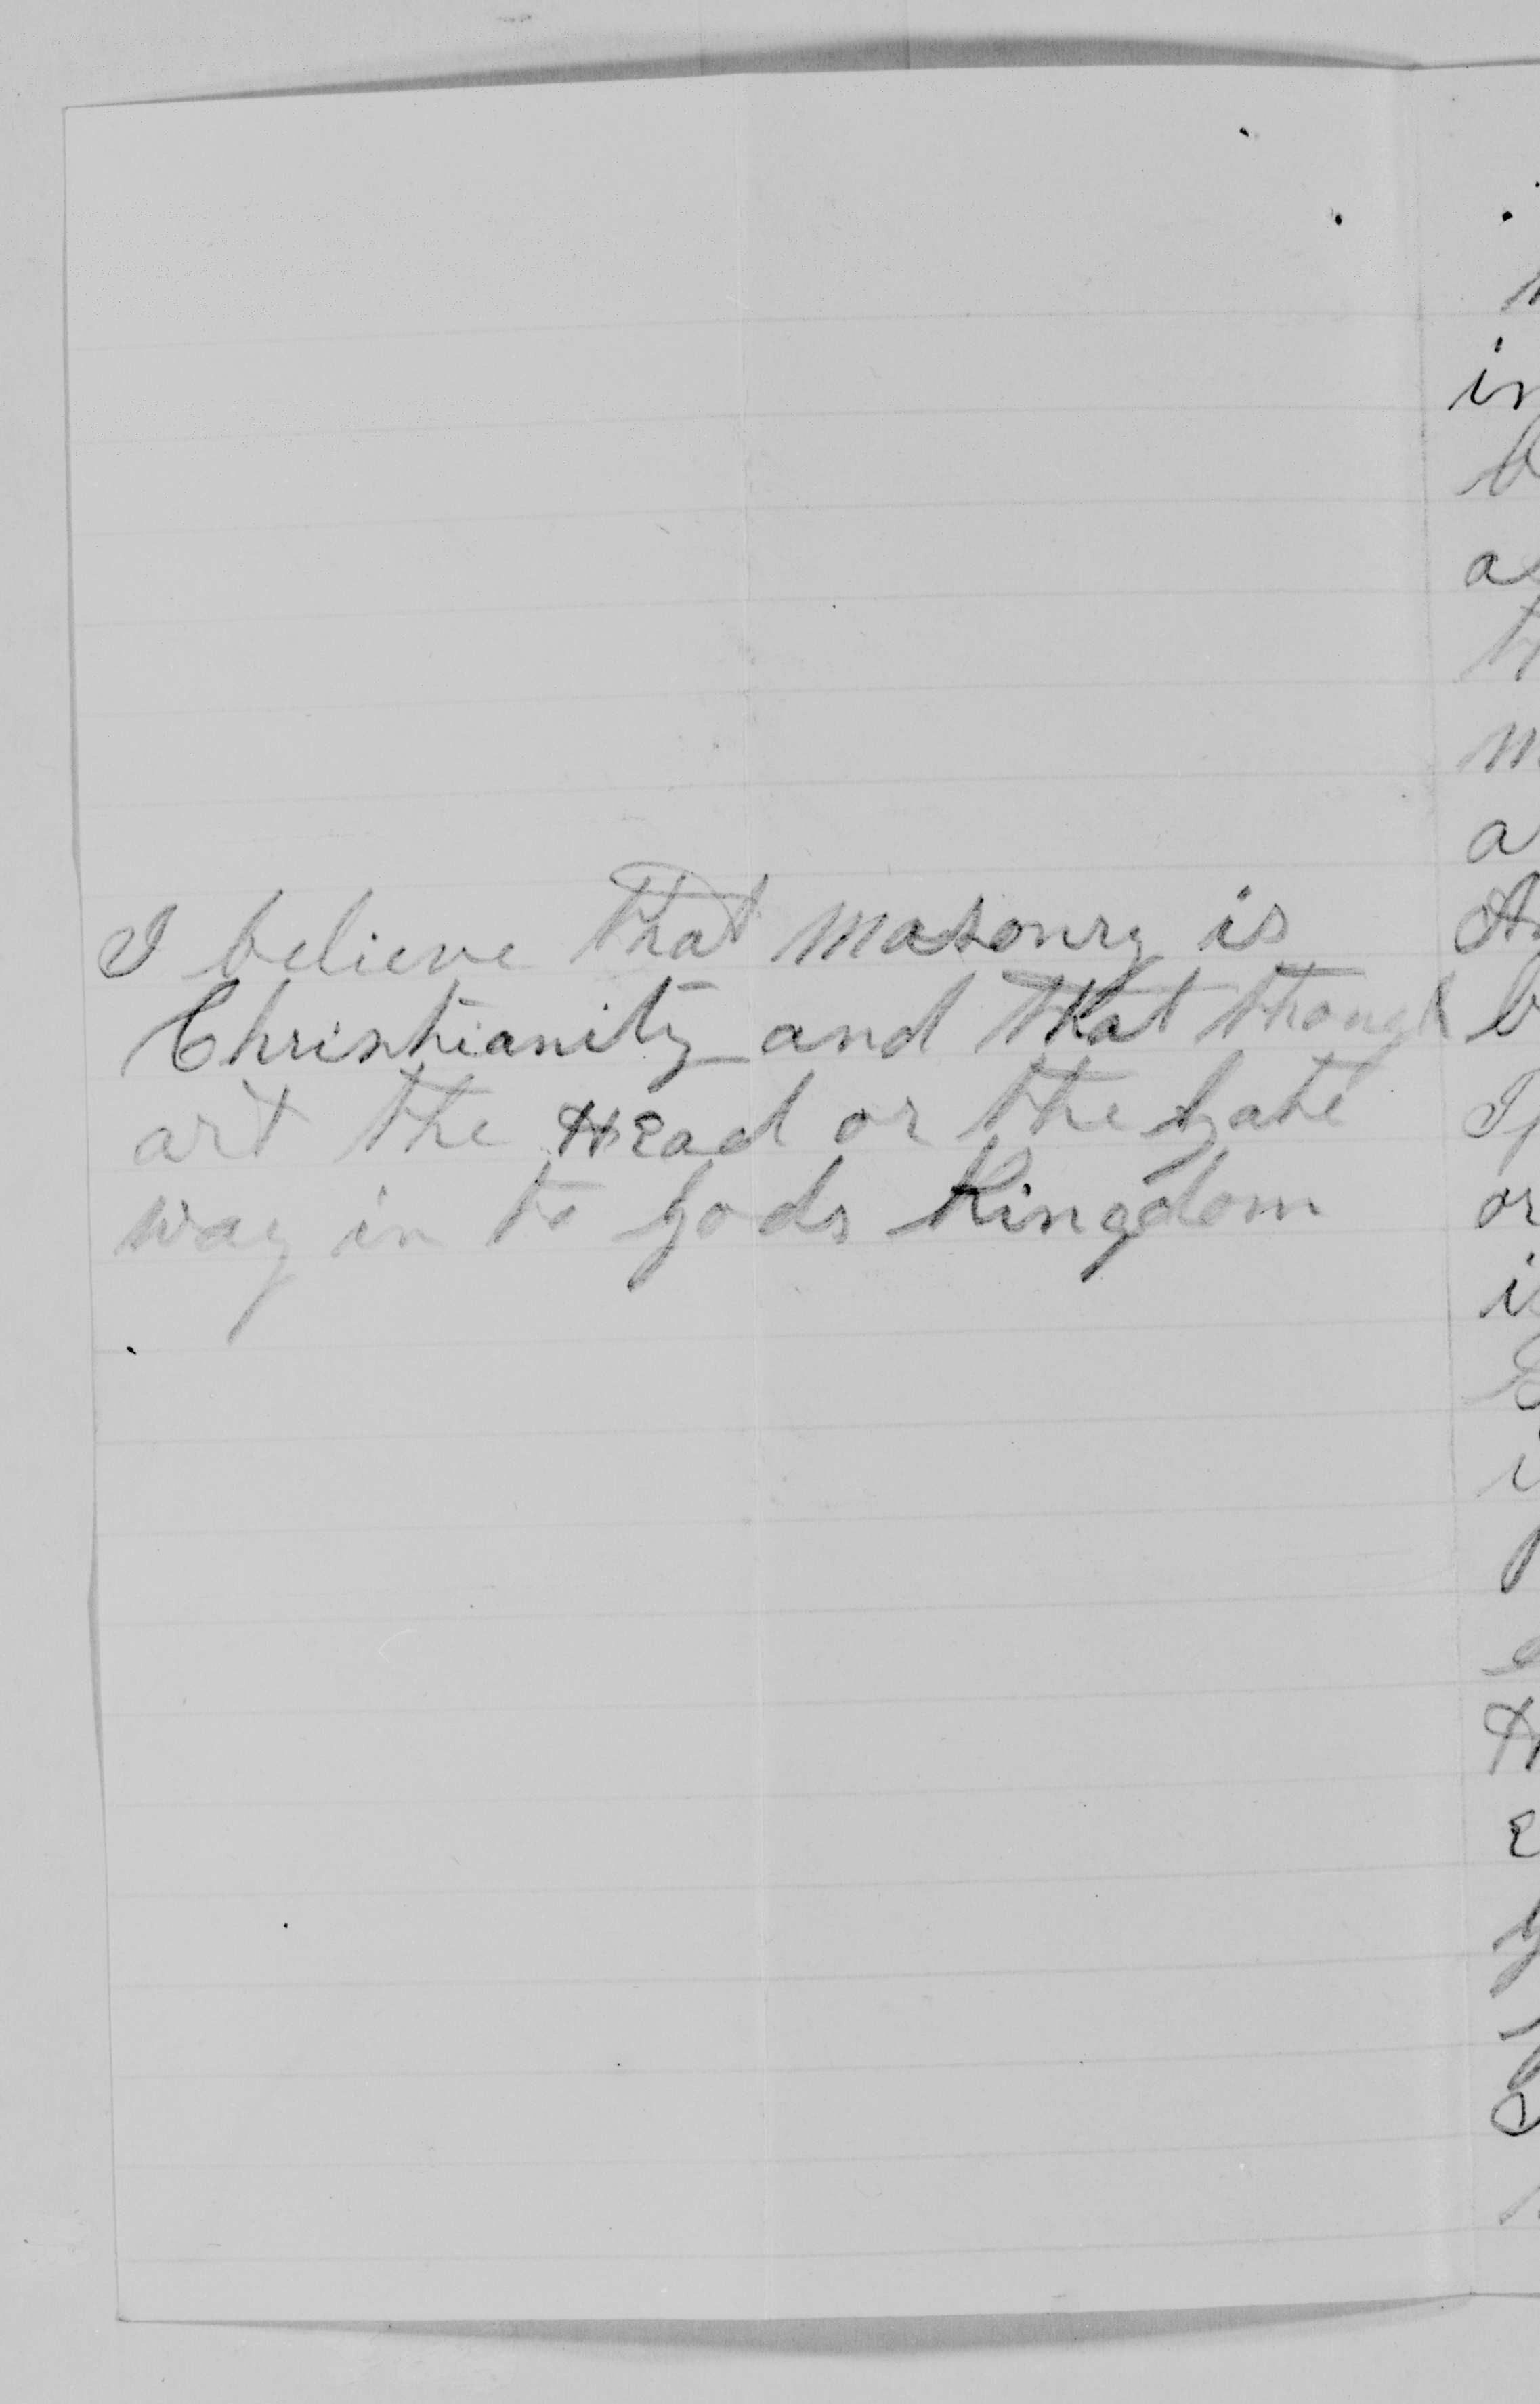 I believe that masonry is
Christianity and that though
art the Head or the gate
way in to gods Kingdom